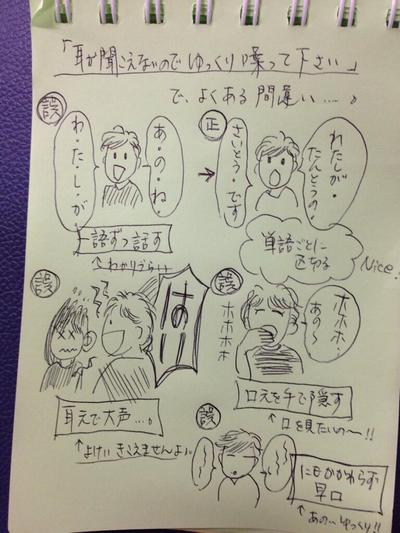 「耳が聞こえないのでゆっくり喋って下さい」
で、よくある間違い……。
誤
あ・の・ね・
わ・た・し・が・
一語ずつ話す
↑わかりづらい
→
正
わたしが・
たんとうの・
さいとう・です
単語ごとに
区切る
Nice!
誤
はい
耳元で大声…。
↑よけいきこえませんよ
誤
ホホホ・
あの〜
ホホホホ
口元を手で隠す
↑口を見たいの〜!!
誤
にもかかわらず
早口
↑あの…ゆっくり!!